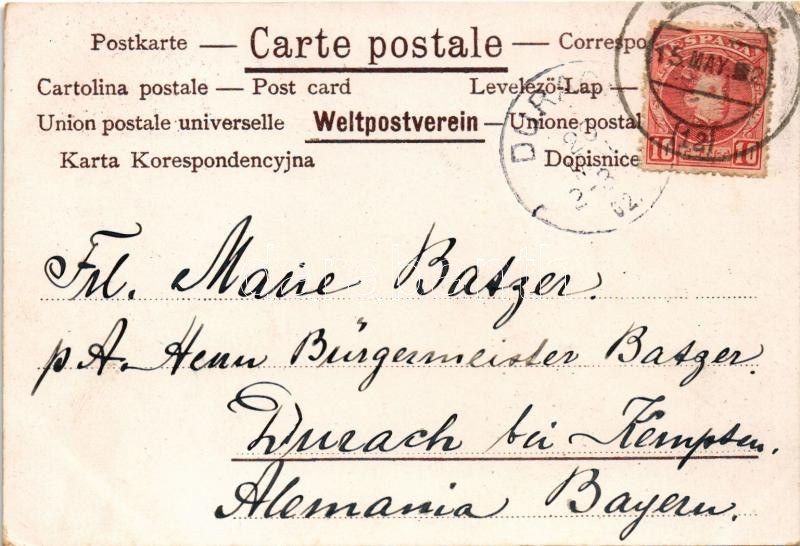 Postkarte — Carte postale — Correspo
Cartolina postale — Post card Levelezö-Lap —
Union postale universelle Weltpostverein — Unione postal
Karta Korespondencyjna Dopisnice
ESPAÑA
15 MAY
10 10
DURAC
02.
Frl. Marie Batzer.
p A. Herrn Bürgermeister Batzer.
Durach bei Kempten.
Alemania Bayern.